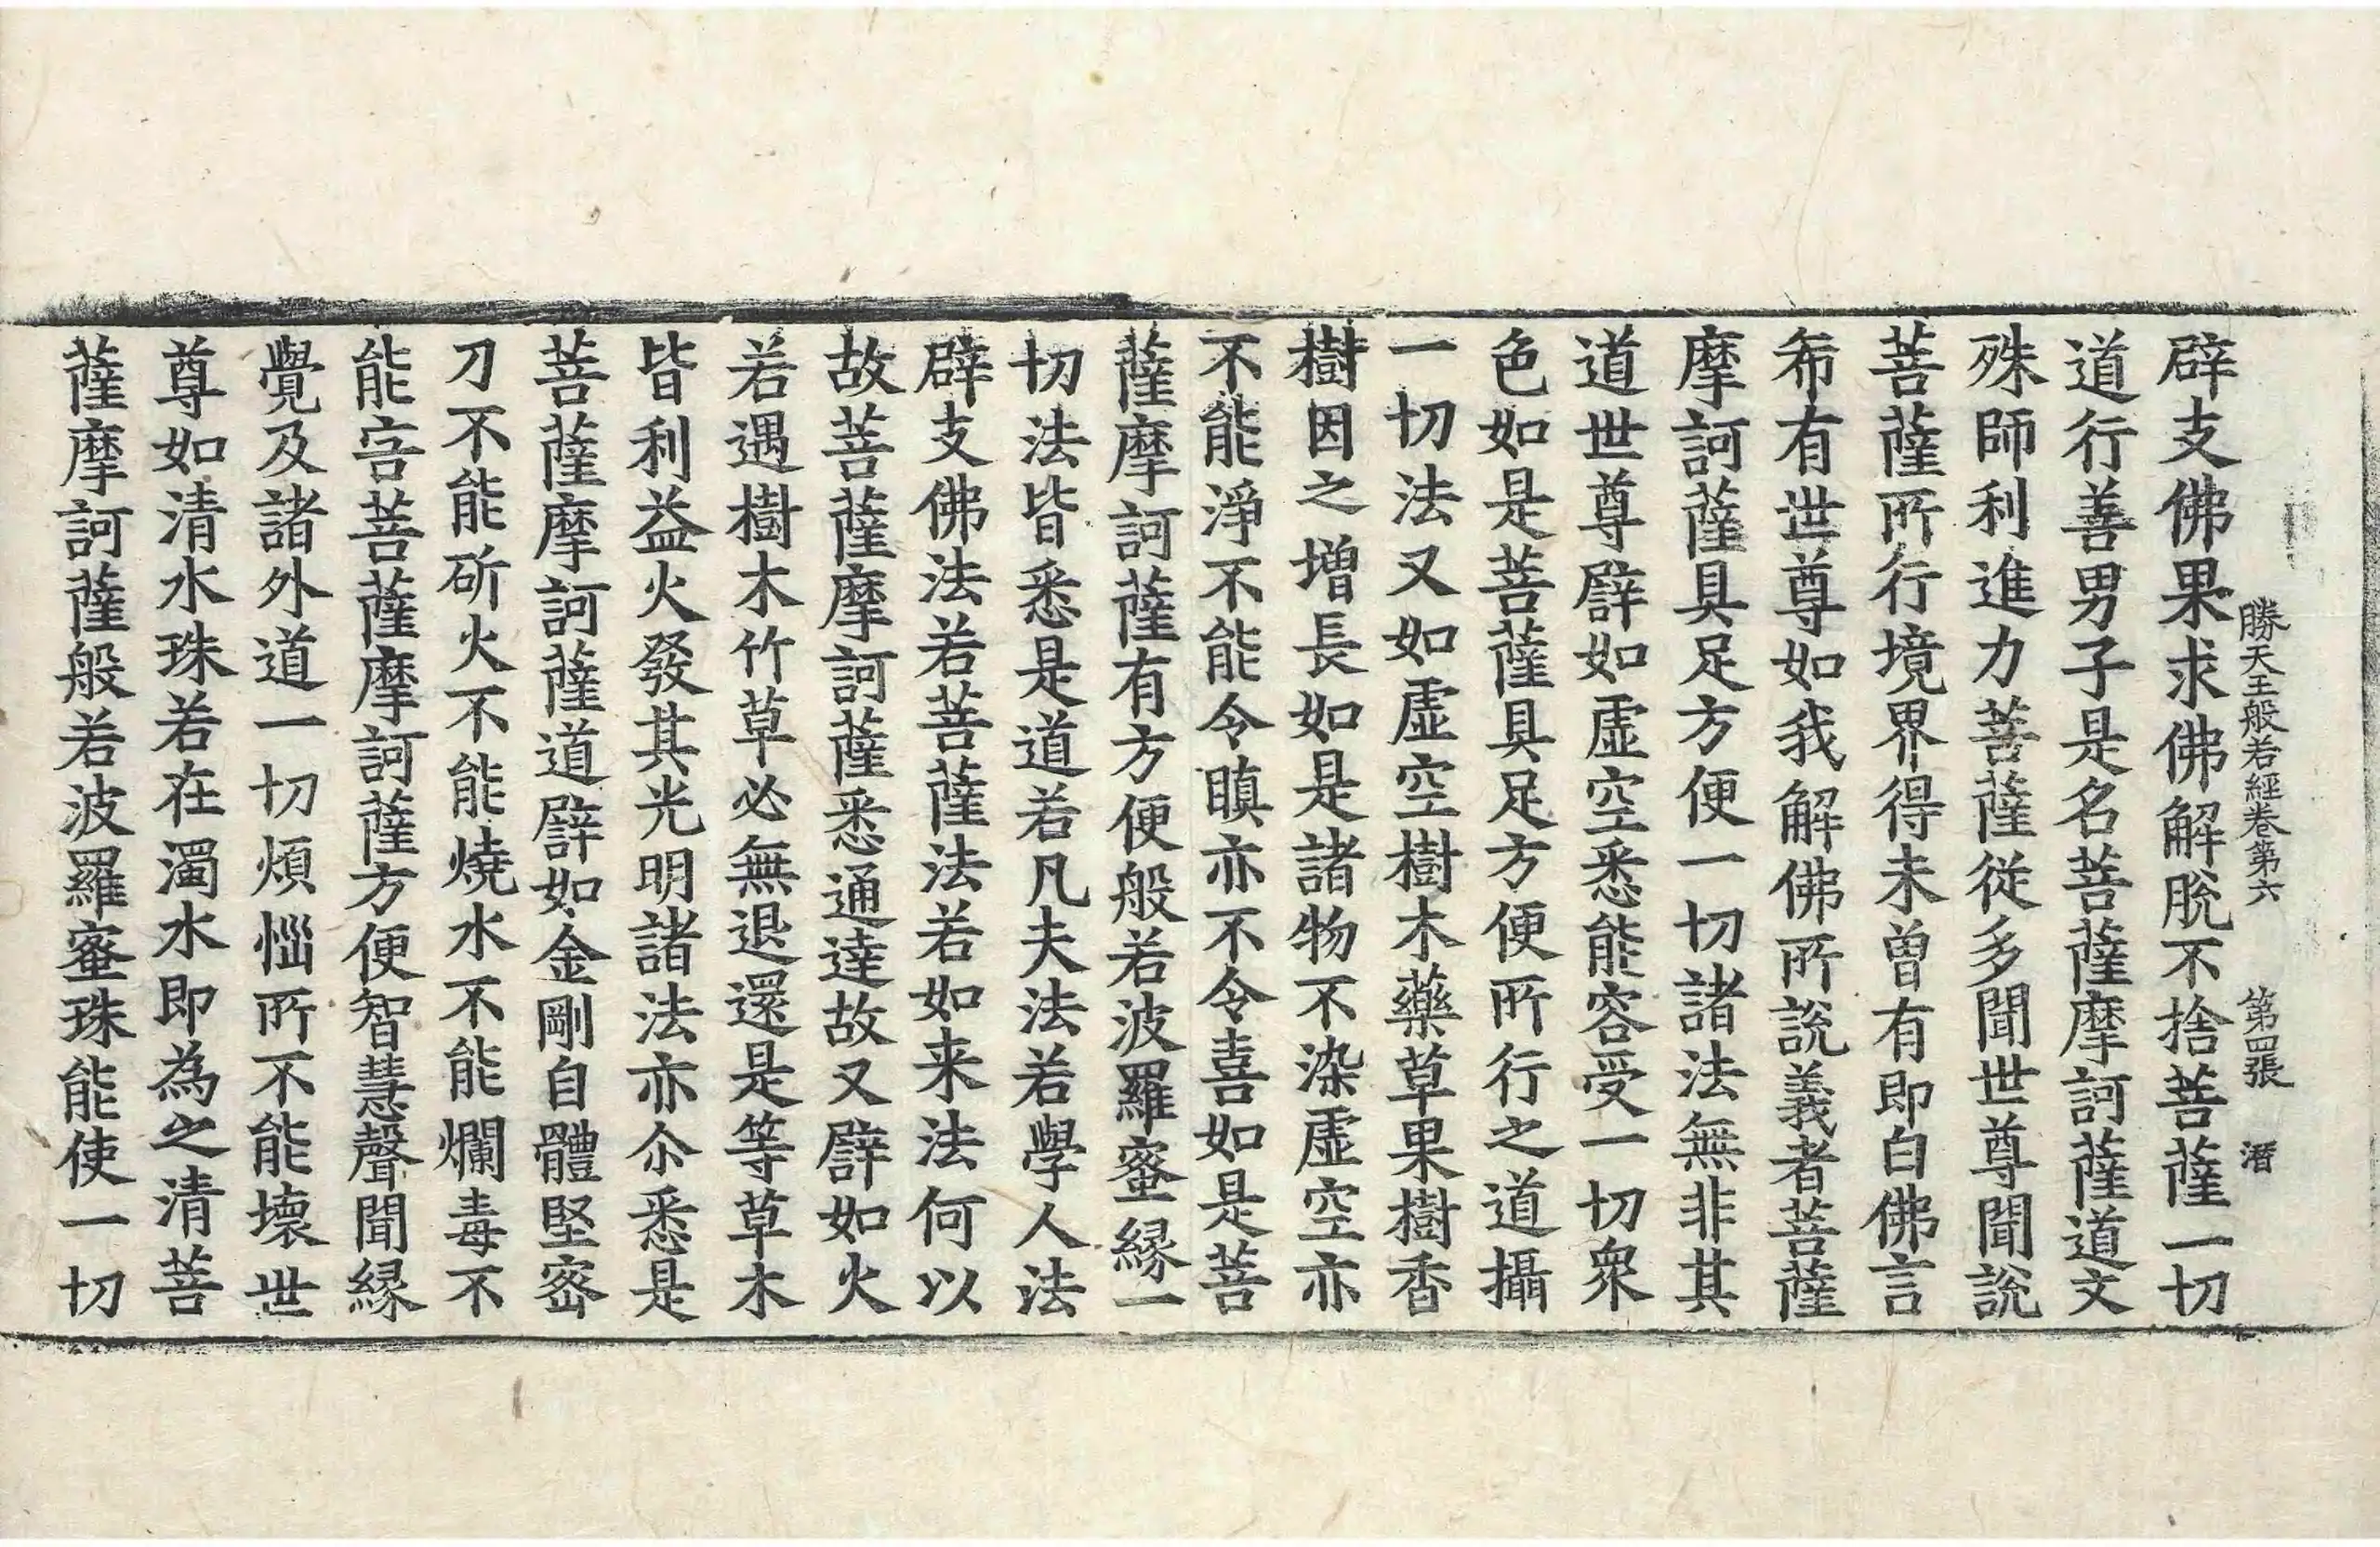 勝天王般若經卷第六 第四張 潛
辟支佛果求佛解脫不捨菩薩一切
道行善男子是名菩薩摩訶薩道文
殊師利進力菩薩從多聞世尊聞說
菩薩所行境界得未曾有即白佛言
希有世尊如我解佛所說義者菩薩
摩訶薩具足方便一切諸法無非其
道世尊譬如虛空悉能容受一切眾
色如是菩薩具足方便所行之道攝
一切法又如虛空樹木藥草果樹香
樹因之增長如是諸物不染虛空亦
不能淨不能令瞋亦不令喜如是菩
薩摩訶薩有方便般若波羅蜜緣一
切法皆悉是道若凡夫法若學人法
辟支佛法若菩薩法若如来法何以
故菩薩摩訶薩悉通達故又譬如火
若遇樹木竹草必無退還是等草木
皆利益火發其光明諸法亦尒悉是
菩薩摩訶薩道譬如金剛自體堅密
刀不能斫火不能燒水不能爛毒不
能害菩薩摩訶薩方便智慧聲聞緣
覺及諸外道一切煩惱所不能壞世
尊如清水珠若在濁水即為之清菩
薩摩訶薩般若波羅蜜珠能使一切